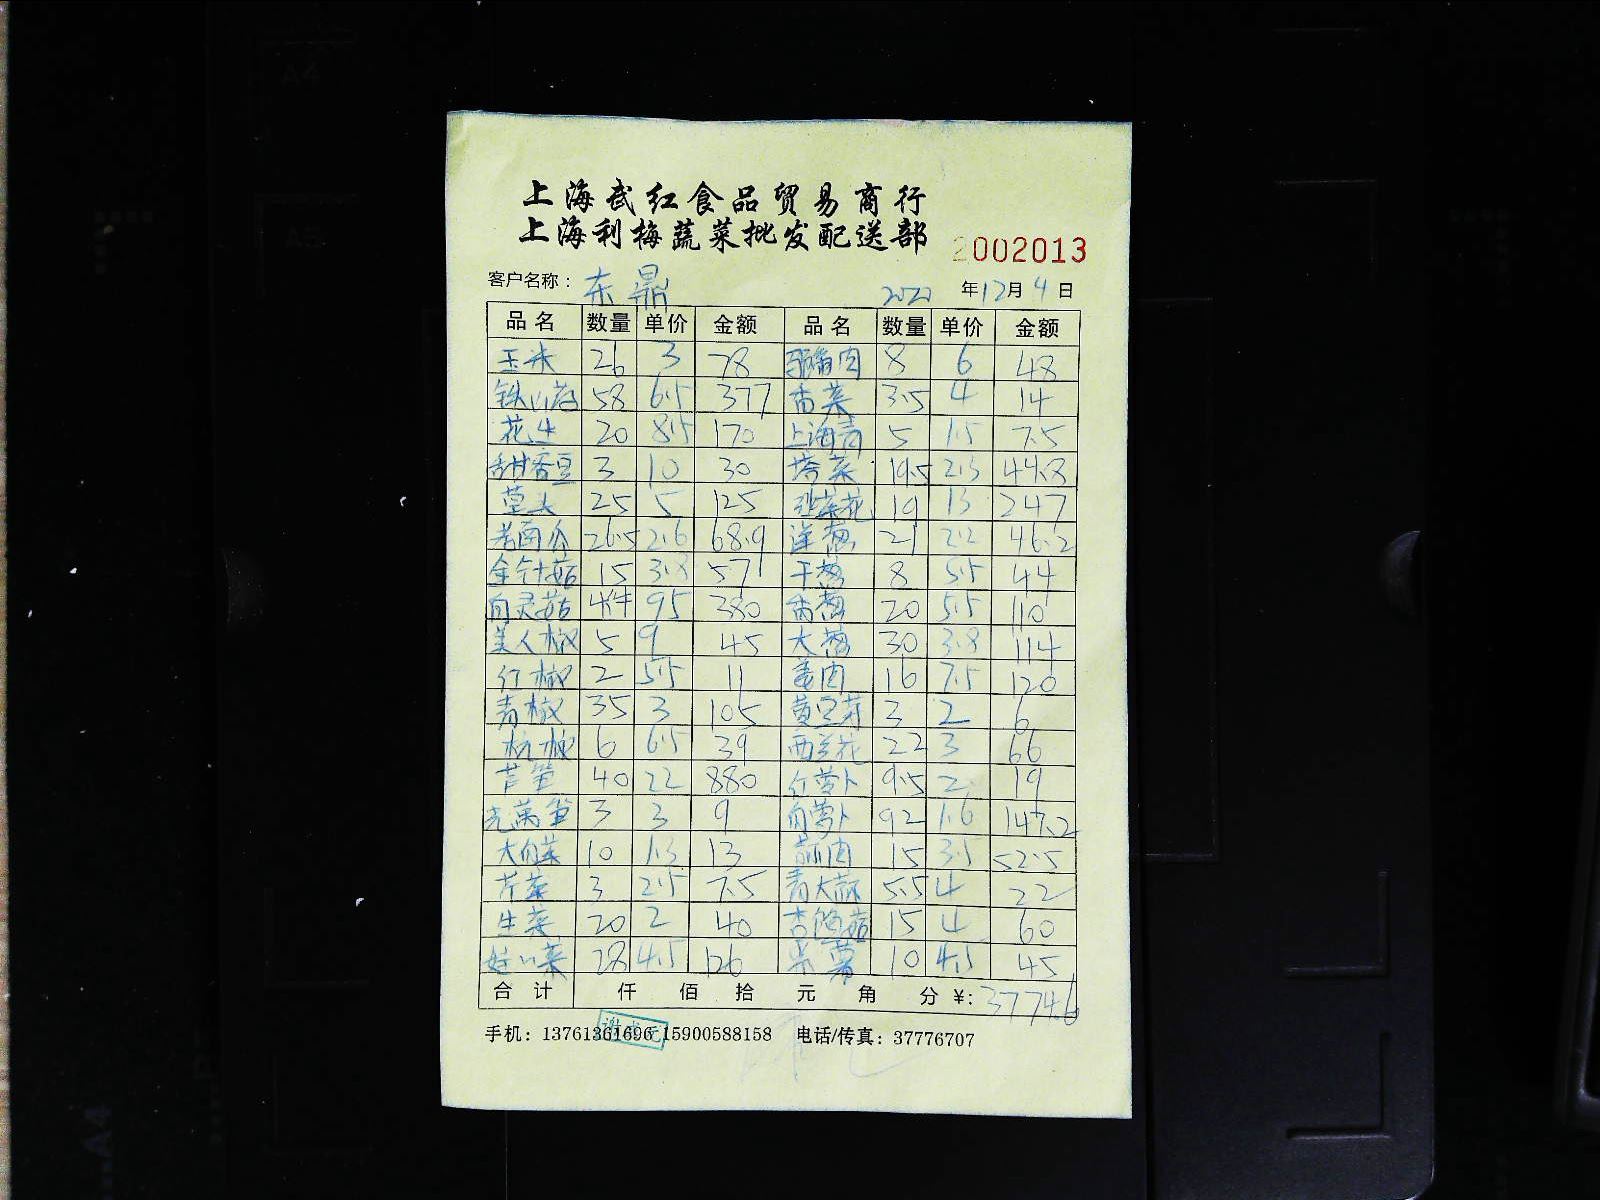 上海武红食品贸易商行
上海利梅蔬菜批发配送部
2002013
客户名称： 东鼎 2020 年 12 月 4 日
品名 数量 单价 金额 品名 数量 单价 金额
玉米 26 3 78 8 6 48
铁山药 58 6.5 377 香菜 3.5 4 14
花生 20 8.5 170 上海青 5 1.5 7.5
甜蜜豆 3 10 30 塔菜 19.5 2.3 44.8
草头 25 5 125 19 13 247
老南瓜 26.5 2.6 68.9 洋葱 21 2.2 46.2
金针菇 15 3.8 57 干葱 8 5.5 44
白灵菇 95 380 香葱 20 5.5 110
美人椒 5 9 45 大葱 30 3.8 114
红椒 2 5.5 11 姜肉 16 7.5 120
青椒 35 3 105 黄豆芽 3 2 6
杭椒 6 6.5 39 西兰花 22 3 66
芦笋 40 22 880 红萝卜 9.5 2 19
光莴笋 3 3 9 白萝卜 92 1.6 147.2
大白菜 10 1.3 13 蒜肉 15 3.5 52.5
芹菜 3 2.5 7.5 青大蒜 5.5 4 22
生菜 20 2 40 杏鲍菇 15 4 60
娃娃菜 28 4.5 126 紫薯 10 4.5 45
合计 仟 佰 拾 元 角 分 ¥: 3774.6
手机：13761361696 15900588158 电话/传真：37776707